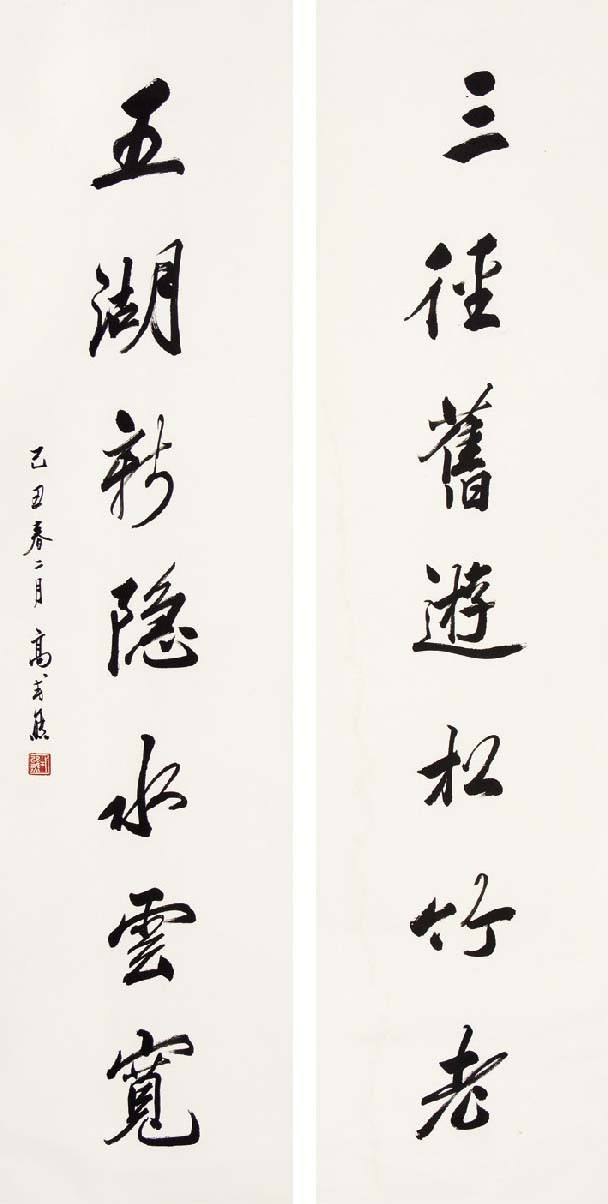 三徑舊遊松竹老
五湖新隱水雲寬
己丑春二月高式熊